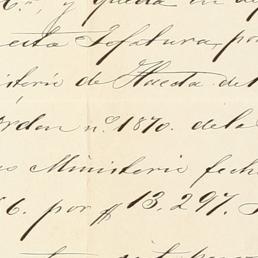 y queda en
esta Jefatura, po
isterio de Hacda. de
Orden n.º 1870. de la
Ministerio fech
6. por $ 13.297.